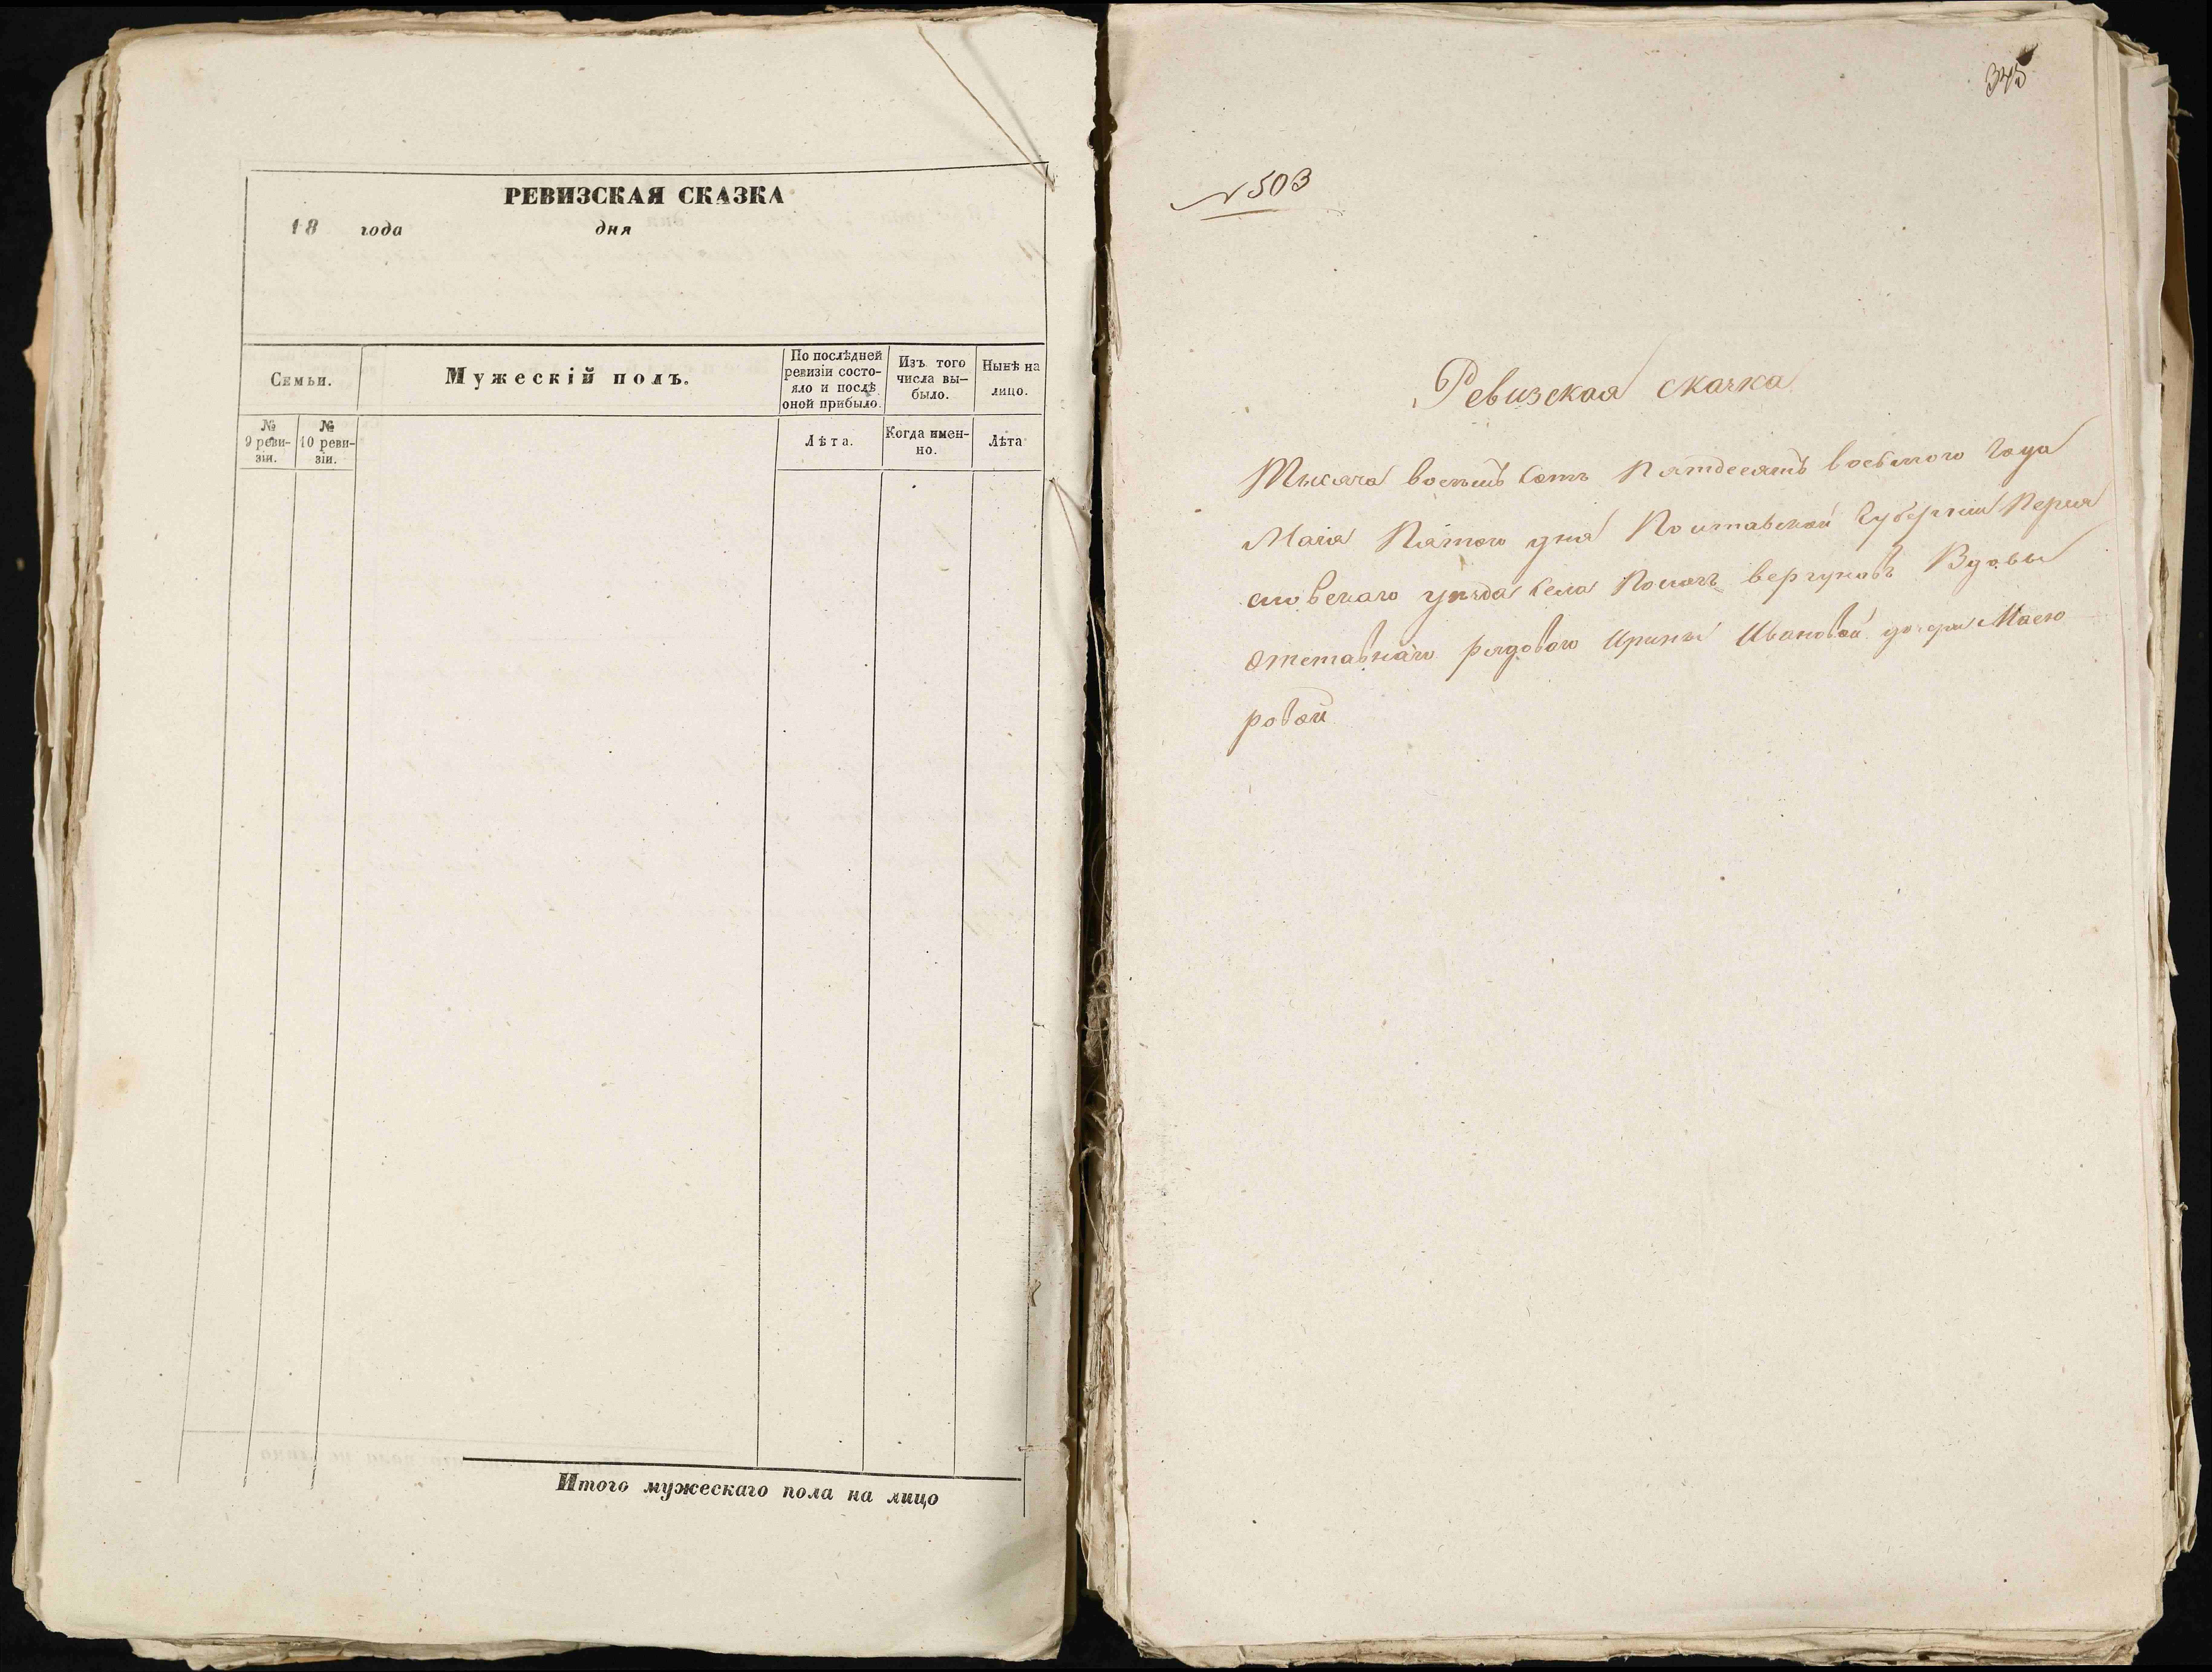 РЕВИЗСКАЯ СКАЗКА
18 года дня
Семьи.
Мужескій полъ.
По послѣдней
ревизіи состо-
яло и послѣ
оной прибыло.
Изъ того
числа вы-
было.
Нынѣ на
лицо.
№
9 реви-
зіи.
№
10 реви-
зіи.
Лѣта.
Когда имен-
но.
Лѣта
Итого мужескаго пола на лицо
345
№ 503
Ревизская скачка
Тысяча восемъ сотъ Пятдесятъ восьмого Года
Маія Пятого дня Полтавской Губерніи Перея
словскаго уезда села Вергуновъ Вдовы
Отставнаго рядового Ирины Ивановой дочери Маею
ровой